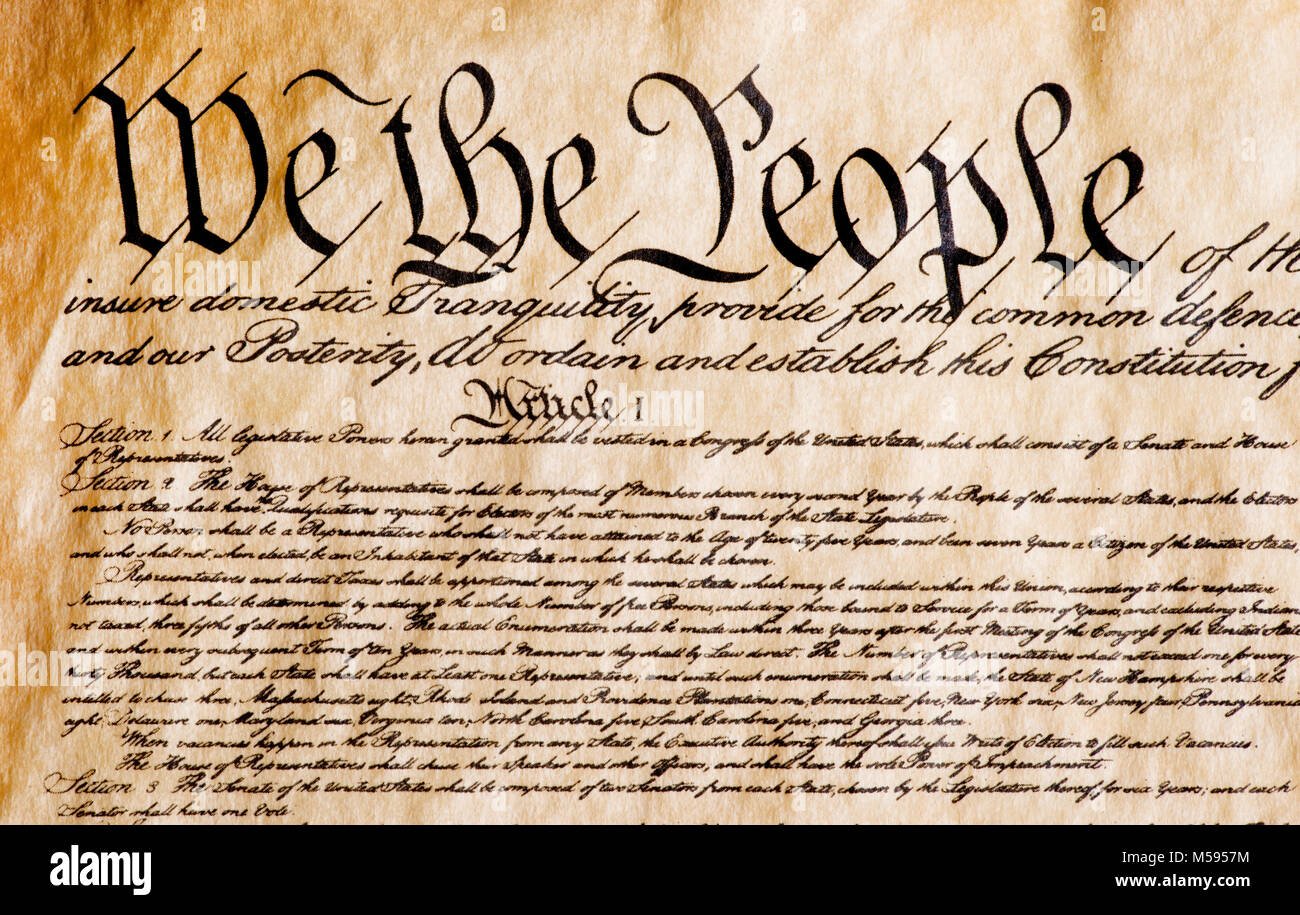 We the People of the
insure domestic Tranquility, provide for the common defence,
and our Posterity, do ordain and establish this Constitution f
Article I
Section 1. All legislative Powers herein granted shall be vested in a Congress of the United States, which shall consist of a Senate and House
of Representatives.
Section 2. The House of Representatives shall be composed of Members chosen every second Year by the People of the several States, and the Electors
in each State shall have the Qualifications requisite for Electors of the most numerous Branch of the State Legislature.
No Person shall be a Representative who shall not have attained to the Age of twenty five Years, and been seven Years a Citizen of the United States,
and who shall not, when elected, be an Inhabitant of that State in which he shall be chosen.
Representatives and direct Taxes shall be apportioned among the several States which may be included within this Union, according to their respective
Numbers, which shall be determined by adding to the whole Number of free Persons, including those bound to Service for a Term of Years, and excluding Indians
not taxed, three fifths of all other Persons. The actual Enumeration shall be made within three Years after the first Meeting of the Congress of the United States
and within every subsequent Term of ten Years, in such Manner as they shall by Law direct. The Number of Representatives shall not exceed one for every
thirty Thousand, but each State shall have at Least one Representative; and until such enumeration shall be made, the State of New Hampshire shall be
entitled to chuse three, Massachusetts eight, Rhode Island and Providence Plantations one, Connecticut five, New York six, New Jersey four, Pennsylvania
eight, Delaware one, Maryland six, Virginia ten, North Carolina five, South Carolina five, and Georgia three.
When vacancies happen in the Representation from any State, the Executive Authority thereof shall issue Writs of Election to fill such Vacancies.
The House of Representatives shall chuse their Speaker and other Officers; and shall have the sole Power of Impeachment.
Section 3 The Senate of the United States shall be composed of two Senators from each State, chosen by the Legislature thereof for six Years; and each
Senator shall have one Vote.
alamy
Image ID: M5957M
www.alamy.com